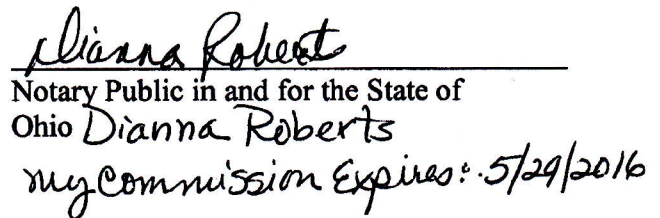 Dianna Roberts
Notary Public in and for the State of
Ohio Dianna Roberts
My Commission Expires: 5/29/2016